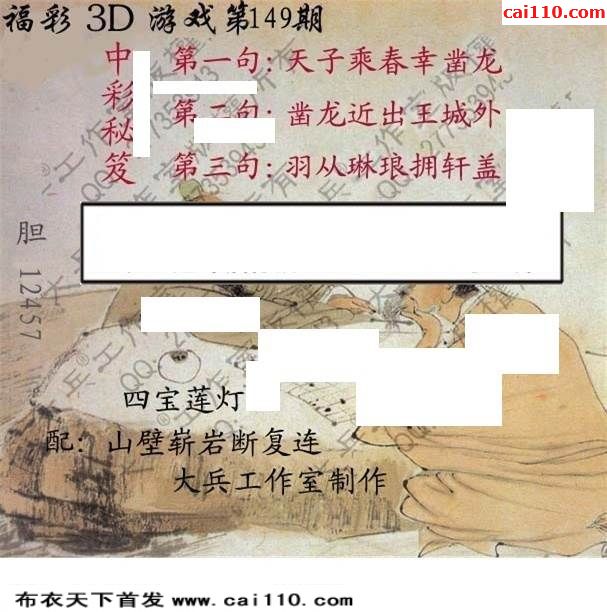 福彩 3D 游戏第149期
cai110.com
中彩秘笈
第一句:天子乘春幸凿龙
第二句:凿龙近出王城外
第三句:羽从琳琅拥轩盖
胆 12457
四宝莲灯
配:山壁崭岩断复连
大兵工作室制作
布衣天下首发 www.cai110.com